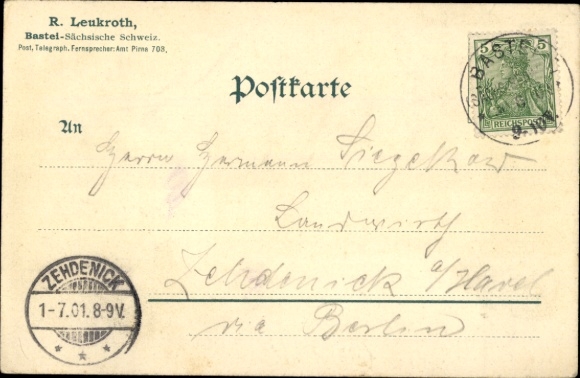 R. Leukroth,
Bastei-Sächsische Schweiz.
Post, Telegraph, Fernsprecher: Amt Pirna 703.
5 5
BASTEI
REICHSPOST
9-10V
Postkarte
An
Herrn Hermann Siegekow
Landwirth
Zehdenick a/Havel
via Berlin
ZEHDENICK
1-7.01.8-9V.